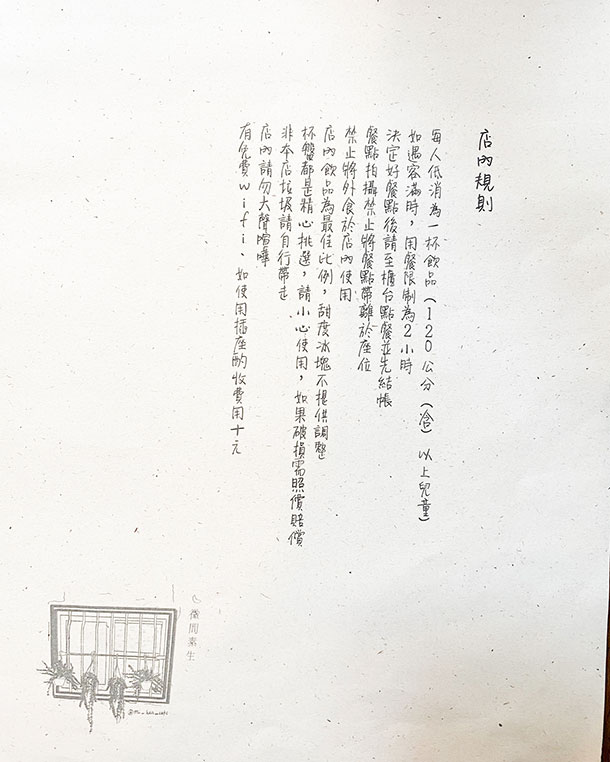 店內規則
每人低消為一杯飲品(120公分(含)以上兒童)
如遇客滿時,用餐限制為2小時
決定好餐點後請至櫃台點餐並先結帳
餐點拍攝禁止將餐點帶離於座位
禁止將外食於店內使用
店內飲品為最佳比例,甜度冰塊不提供調整
杯盤都是精心挑選,請小心使用,如果破損需照價賠償
非本店垃圾請自行帶走
店內請勿大聲喧嘩
有免費wifi、如使用插座酌收費用十元